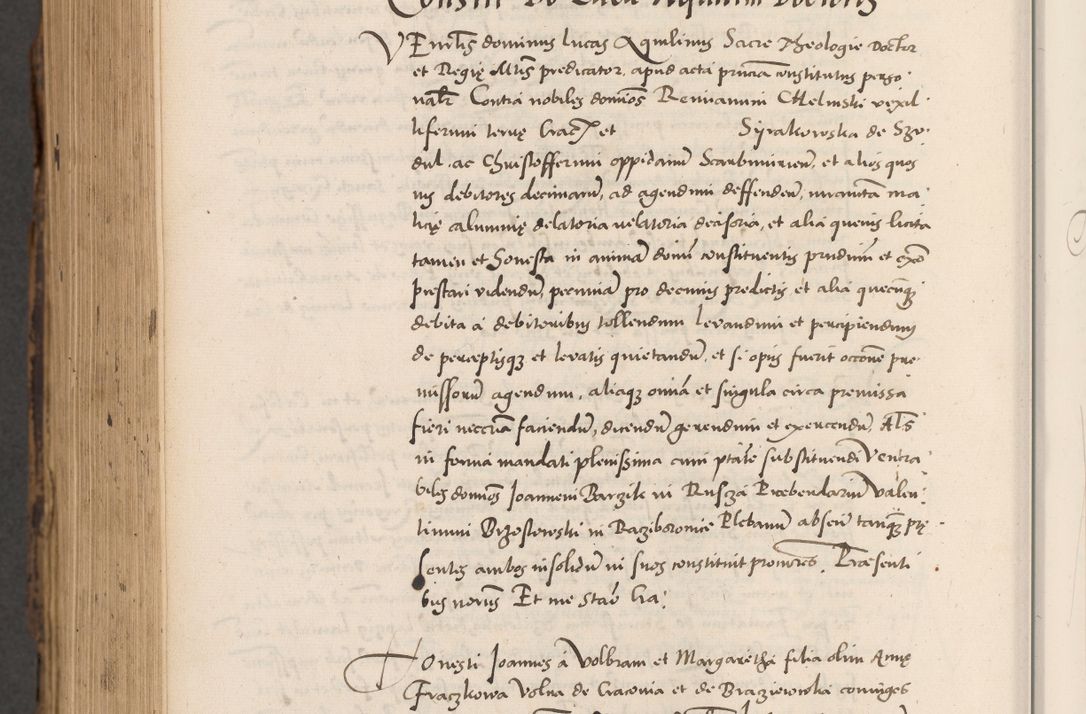 VEnrlis dominus Lucas Aquilinus Sacre Theologie Doctor
et Regię Mtis predicator, apud acta princia constitutus perso
nalr Contra nobiles dominos Beniaminum Chelmski vexil
liferum terrę Crac et Syrakowska de Szy
dul ac Christofferum oppidanum Scarbimirien, et alios quos
vis debitores decimarum, ad agendum deffenden, iurament ma
licię calumnię delatoria relatoria decisoria, et alia quevis licita
tamen et honesta in animam domini constituentis prudium et
prestari videndum, pecuniam pro decimis predictis et alia quecunq
debita a debitoribus tollendum levandum et percipiendum
de perceptisq et levatis quietandum, et si opus fuerit occone pre
missorum agendum, aliaq omnia et singula circa premissa
fieri neccria faciendum, dicendum gerendum et exercendum, Als
in forma mandati plenissima cum ptate substituendi Venera
biles dominos Joannem Barzik in Ruscza Præbendarium Valen
tinum Brzostowski in Raciborowice Plebanum absen tanq prę
sentes ambos insolidum in suos constituit procures. Præsenti
bus Et me
Honesti Joannes a Volbram et Margaretha filia olim Annę
Fraczkowa Volna de Cracovia et de coniuges